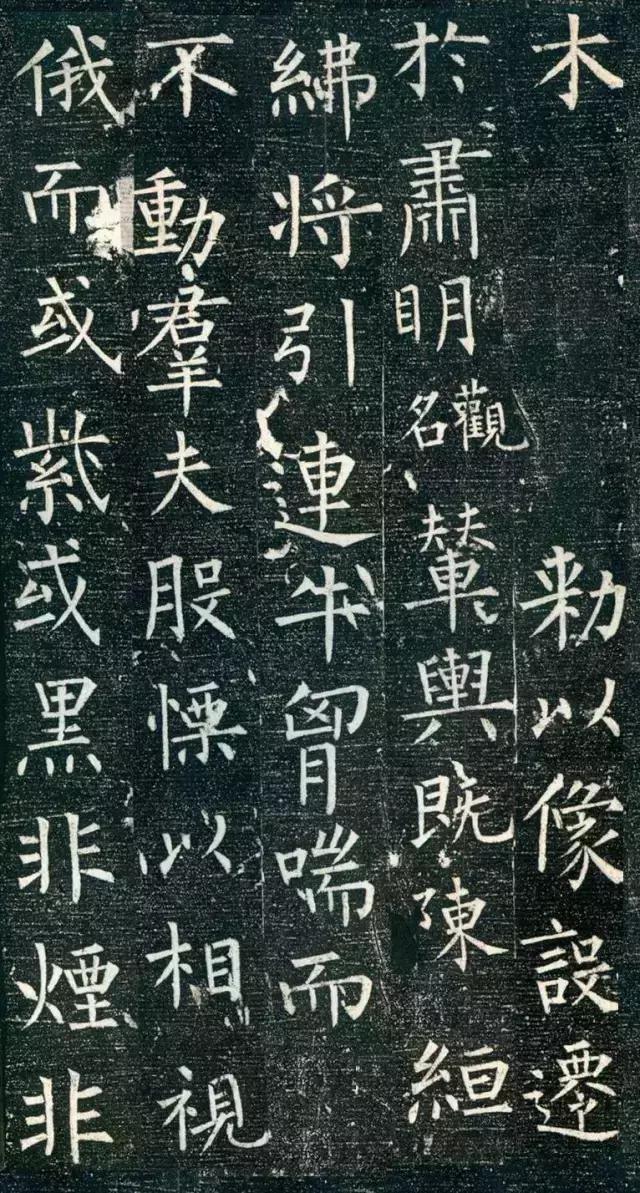 木 勑以像設遷
於肅明觀名輦輿既陳 絙
紼將引連牛胷喘而
不動羣夫股慄以相視
俄而或紫或黑非煙非